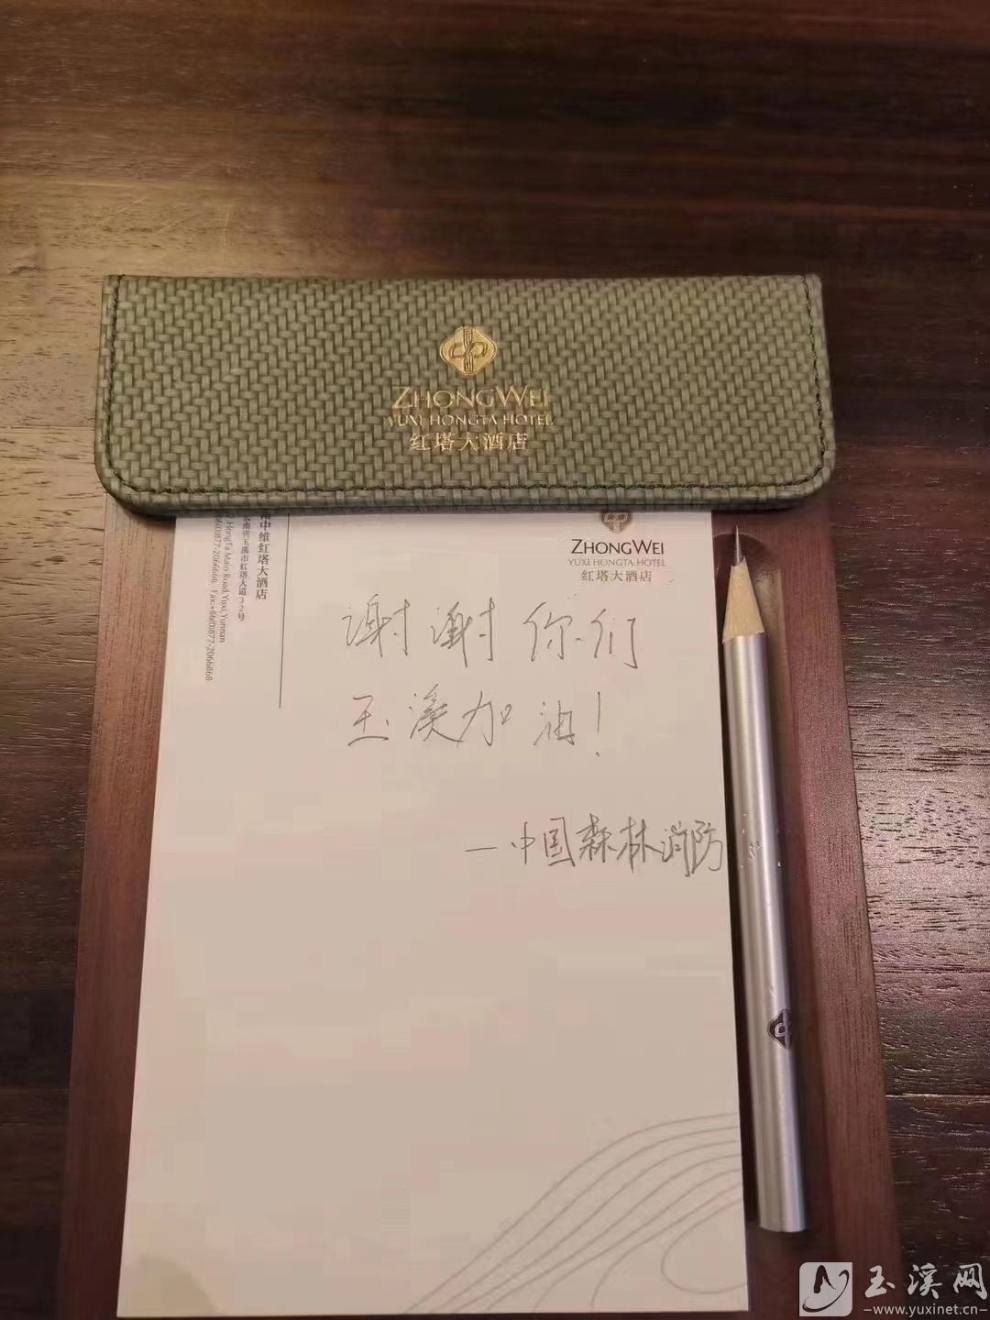 ZHONGWEI
YUXI HONGTA HOTEL
红塔大酒店
ZHONGWEI
YUXI HONGTA HOTEL
红塔大酒店
中维红塔大酒店
玉溪市红塔大道32号
HongTa Main Road, Yuxi, Yunnan
877-2066666 Fax:+86(0)877-2066868
谢谢你们
玉溪加油！
—中国森林消防
玉溪网
-www.yuxinet.cn-